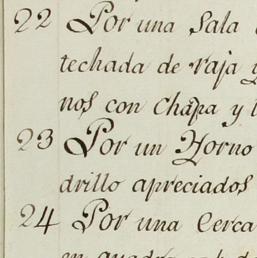 22 Por una Sala
techada de raja y
nos con Chapa y l
23 Por un Horno
drillo apreciados
24 Por una Cerca
en quadro